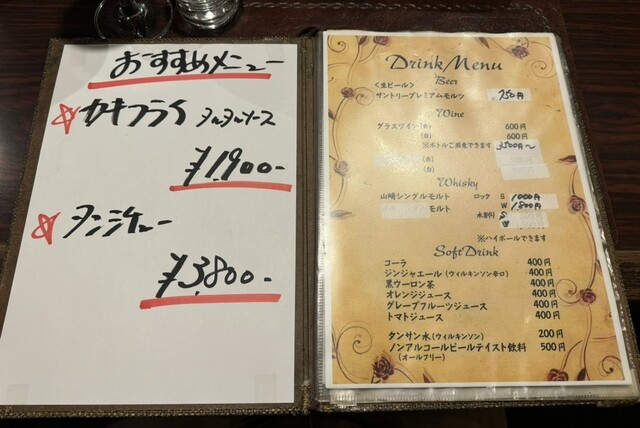 おすすめメニュー
カキフライ タルタルソース
¥1,900-
タンシチュー
¥3,800-
Drink Menu
Beer
<生ビール>
サントリープレミアムモルツ 750円
Wine
グラスワイン(赤) 600円
(白) 600円
※ボトルご用意できます 3500円~
(赤)
(白)
Whisky
山崎シングルモルト ロック S 1000円
W 1800円
モルト 水割り S
W
※ハイボールできます
Soft Drink
コーラ 400円
ジンジャエール(ウィルキンソン辛口) 400円
黒ウーロン茶 400円
オレンジジュース 400円
グレープフルーツジュース 400円
トマトジュース 400円
タンサン水(ウィルキンソン) 200円
ノンアルコールビールテイスト飲料 500円
(オールフリー)